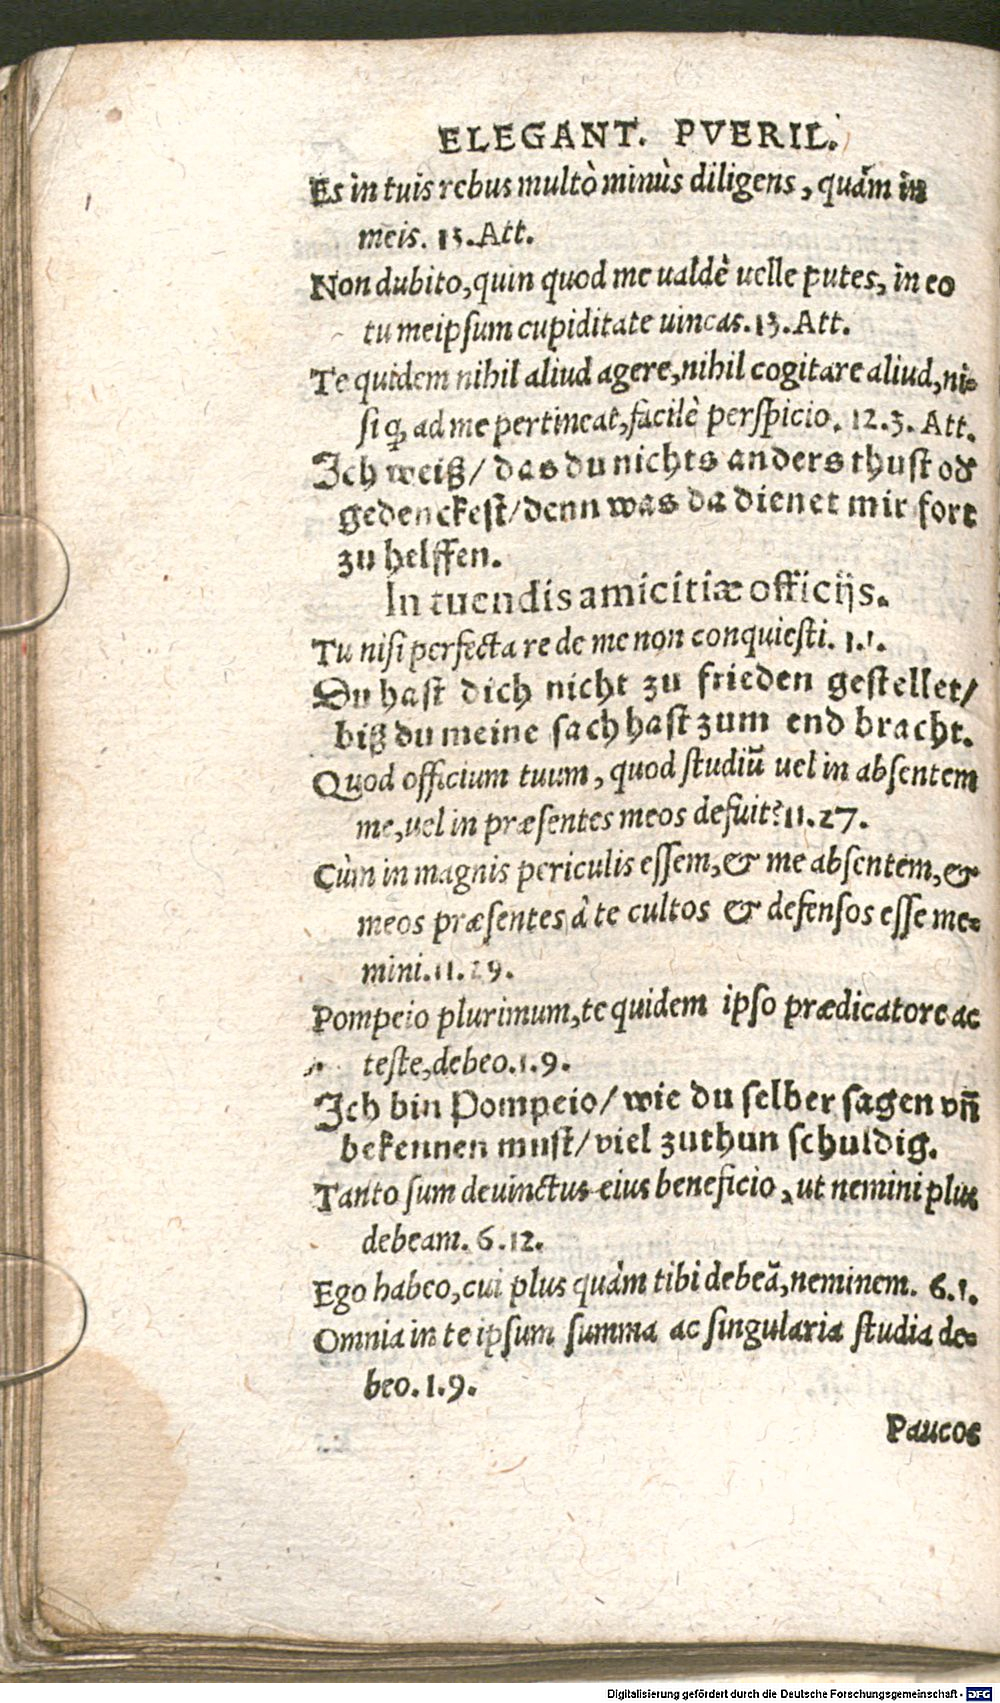 ELEGANT. PVERIL.
Es in tuis rebus multò minùs diligens, quàm in
meis. 15. Att.
Non dubito, quin quod me ualdè uelle putes, in eo
tu meipſum cupiditate uincas. 13. Att.
Te quidem nihil aliud agere, nihil cogitare aliud, ni-
ſi ꝙ ad me pertineat, facilè perſpicio. 12. 3. Att.
Ich weiß/ das du nichts anders thuſt od̕
gedenckeſt/ denn was da dienet mir fort
zu helffen.
In tuendis amicitiæ officijs.
Tu niſi perfecta re de me non conquieſti. 1. 1.
Du haſt dich nicht zu frieden geſtellet/
biß du meine ſach haſt zum end bracht.
Quod officium tuum, quod ſtudiũ uel in abſentem
me, uel in præſentes meos defuit? 11. 27.
Cùm in magnis periculis eſſem, & me abſentem, &
meos præſentes à te cultos & defenſos eſſe me-
mini. 11. 29.
Pompeio plurimum, te quidem ipſo prædicatore ac
teſte, debeo. 1. 9.
Ich bin Pompeio/ wie du ſelber ſagen vñ
bekennen muſt/ viel zuthun ſchuldig.
Tanto ſum deuinctus eius beneficio, ut nemini plus
debeam. 6. 12.
Ego habeo, cui plus quàm tibi debeã, neminem. 6. 1.
Omnia in te ipſum ſumma ac ſingularia ſtudia de-
beo. 1. 9.
Paucos
Digitalisierung gefördert durch die Deutsche Forschungsgemeinschaft - DFG